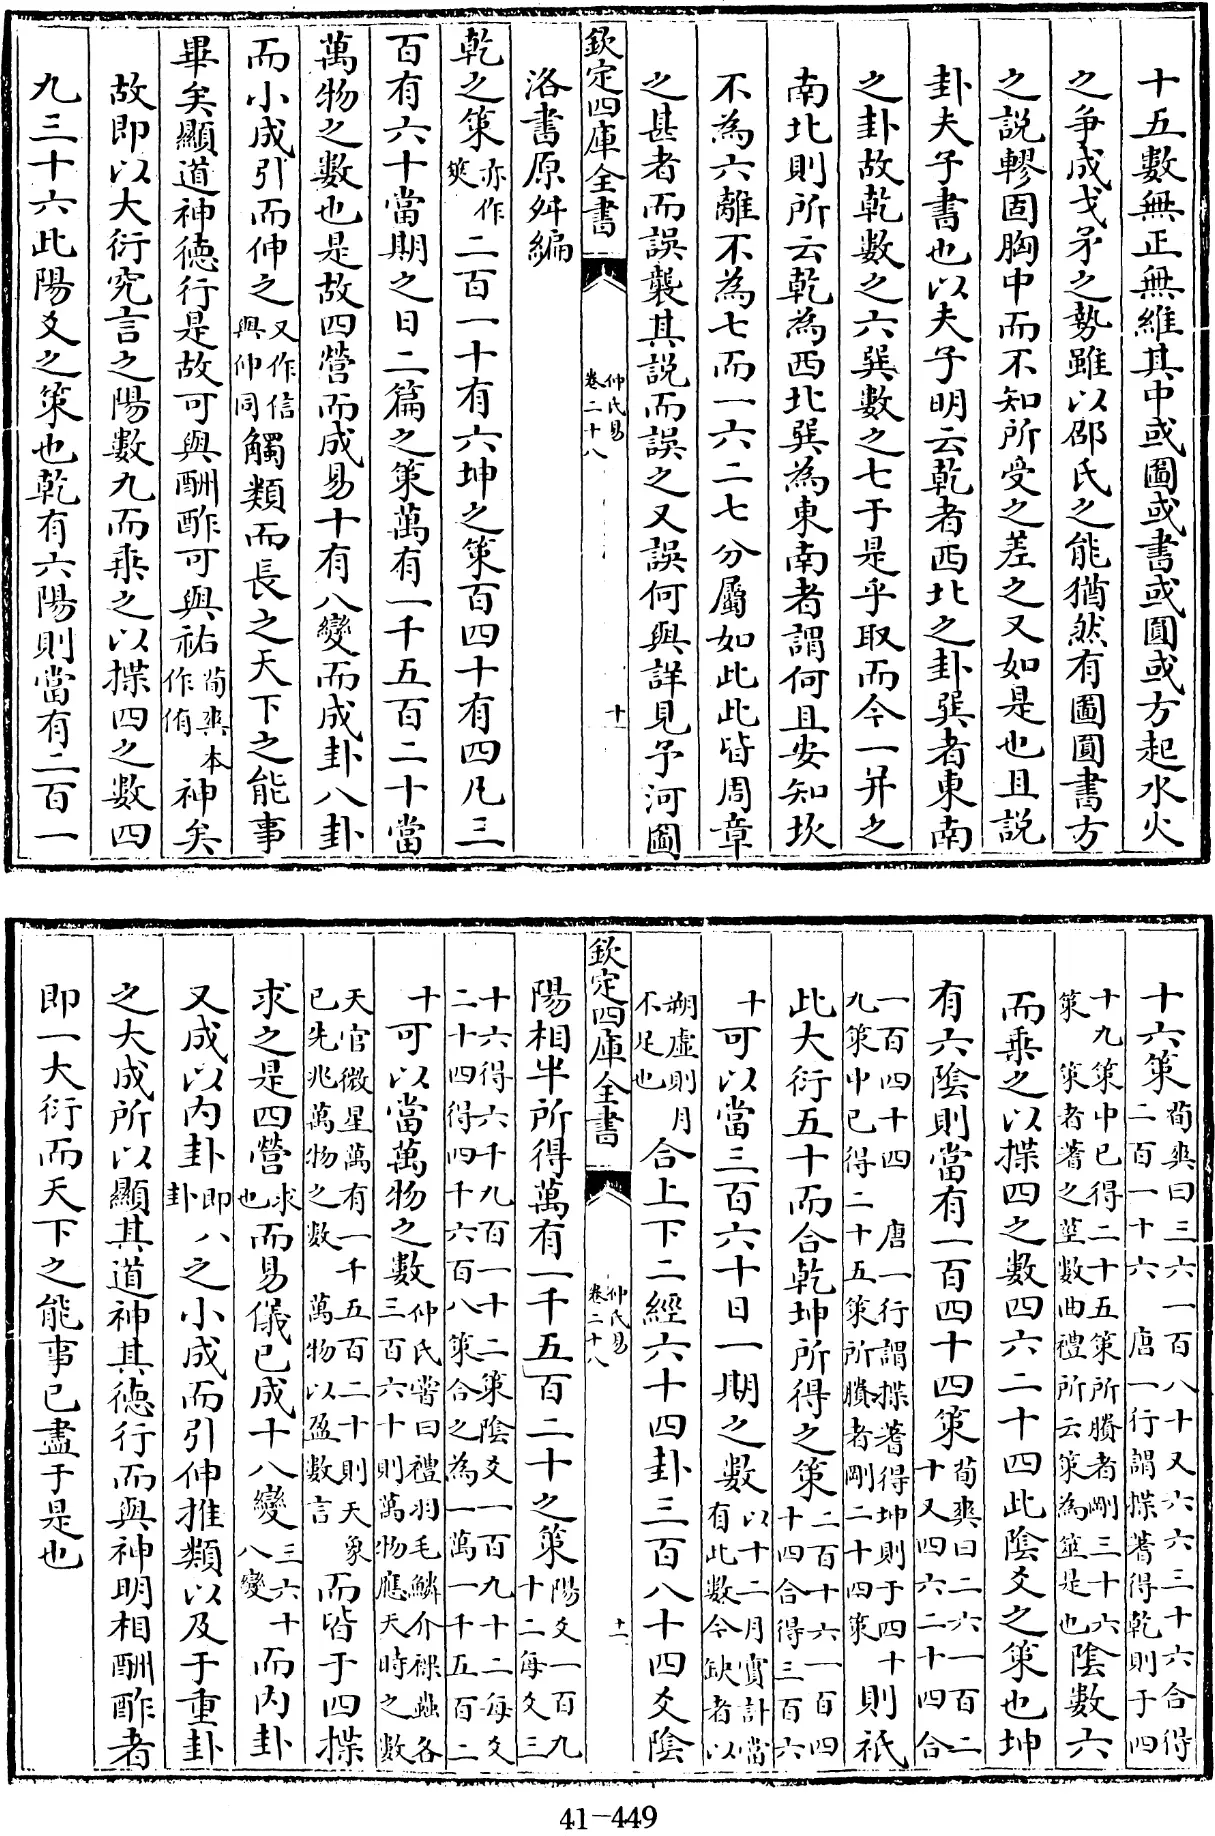 十五數無正無維其中或圖或書或圓或方起水火
之爭成戈矛之勢雖以邵氏之能猶然有圖圓書方
之說轇固胸中而不知所受之差之又如是也且說
卦夫子書也以夫子明云乾者西北之卦巽者東南
之卦故乾數之六巽數之七于是乎取而今一并之
南北則所云乾為西北巽為東南者謂何且安知坎
不為六離不為七而一六二七分屬如此此皆周章
之甚者而誤襲其說而誤之又誤何與詳見予河圖
欽定四庫全書 仲氏易 卷二十八 十一
洛書原舛編
乾之策亦作筴二百一十有六坤之策百四十有四凡三
百有六十當期之日二篇之策萬有一千五百二十當
萬物之數也是故四營而成易十有八變而成卦八卦
而小成引而伸之又作信與伸同觸類而長之天下之能事
畢矣顯道神德行是故可與酬酢可與祐荀爽本作侑神矣
故即以大衍究言之陽數九而乘之以揲四之數四
九三十六此陽爻之策也乾有六陽則當有二百一
十六策荀爽曰三六一百八十又六六三十六合得二百一十六 唐一行謂揲蓍得乾則于四
十九策中已得二十五策所賸者剛三十六策 策者蓍之莖數曲禮所云策為筮是也陰數六
而乘之以揲四之數四六二十四此陰爻之策也坤
有六陰則當有一百四十四策荀爽曰二六一百二十又四六二十四合
一百四十四 唐一行謂揲蓍得坤則于四十九策中已得二十五策所賸者剛二十四策則祇
此大衍五十而合乾坤所得之策二百十六一百四十四合得三百六
十可以當三百六十日一期之數以十二月實計當有此數今缺者以
朔虛則月不足也合上下二經六十四卦三百八十四爻陰
欽定四庫全書 仲氏易 卷二十八 十一
陽相半所得萬有一千五百二十之策陽爻一百九十二每爻三
十六得六千九百一十二策陰爻一百九十二每爻二十四得四千六百八策合之為一萬一千五百二
十可以當萬物之數仲氏嘗曰禮羽毛鱗介裸蟲各三百六十則萬物應天時之數
天官微星萬有一千五百二十則天象已先兆萬物之數 萬物以盈數言而皆于四揲
求之是四營求也而易儀已成十八變三六十八變而內卦
又成以內卦即八卦之小成而引伸推類以及于重卦
之大成所以顯其道神其德行而與神明相酬酢者
即一大衍而天下之能事已盡于是也
41-449